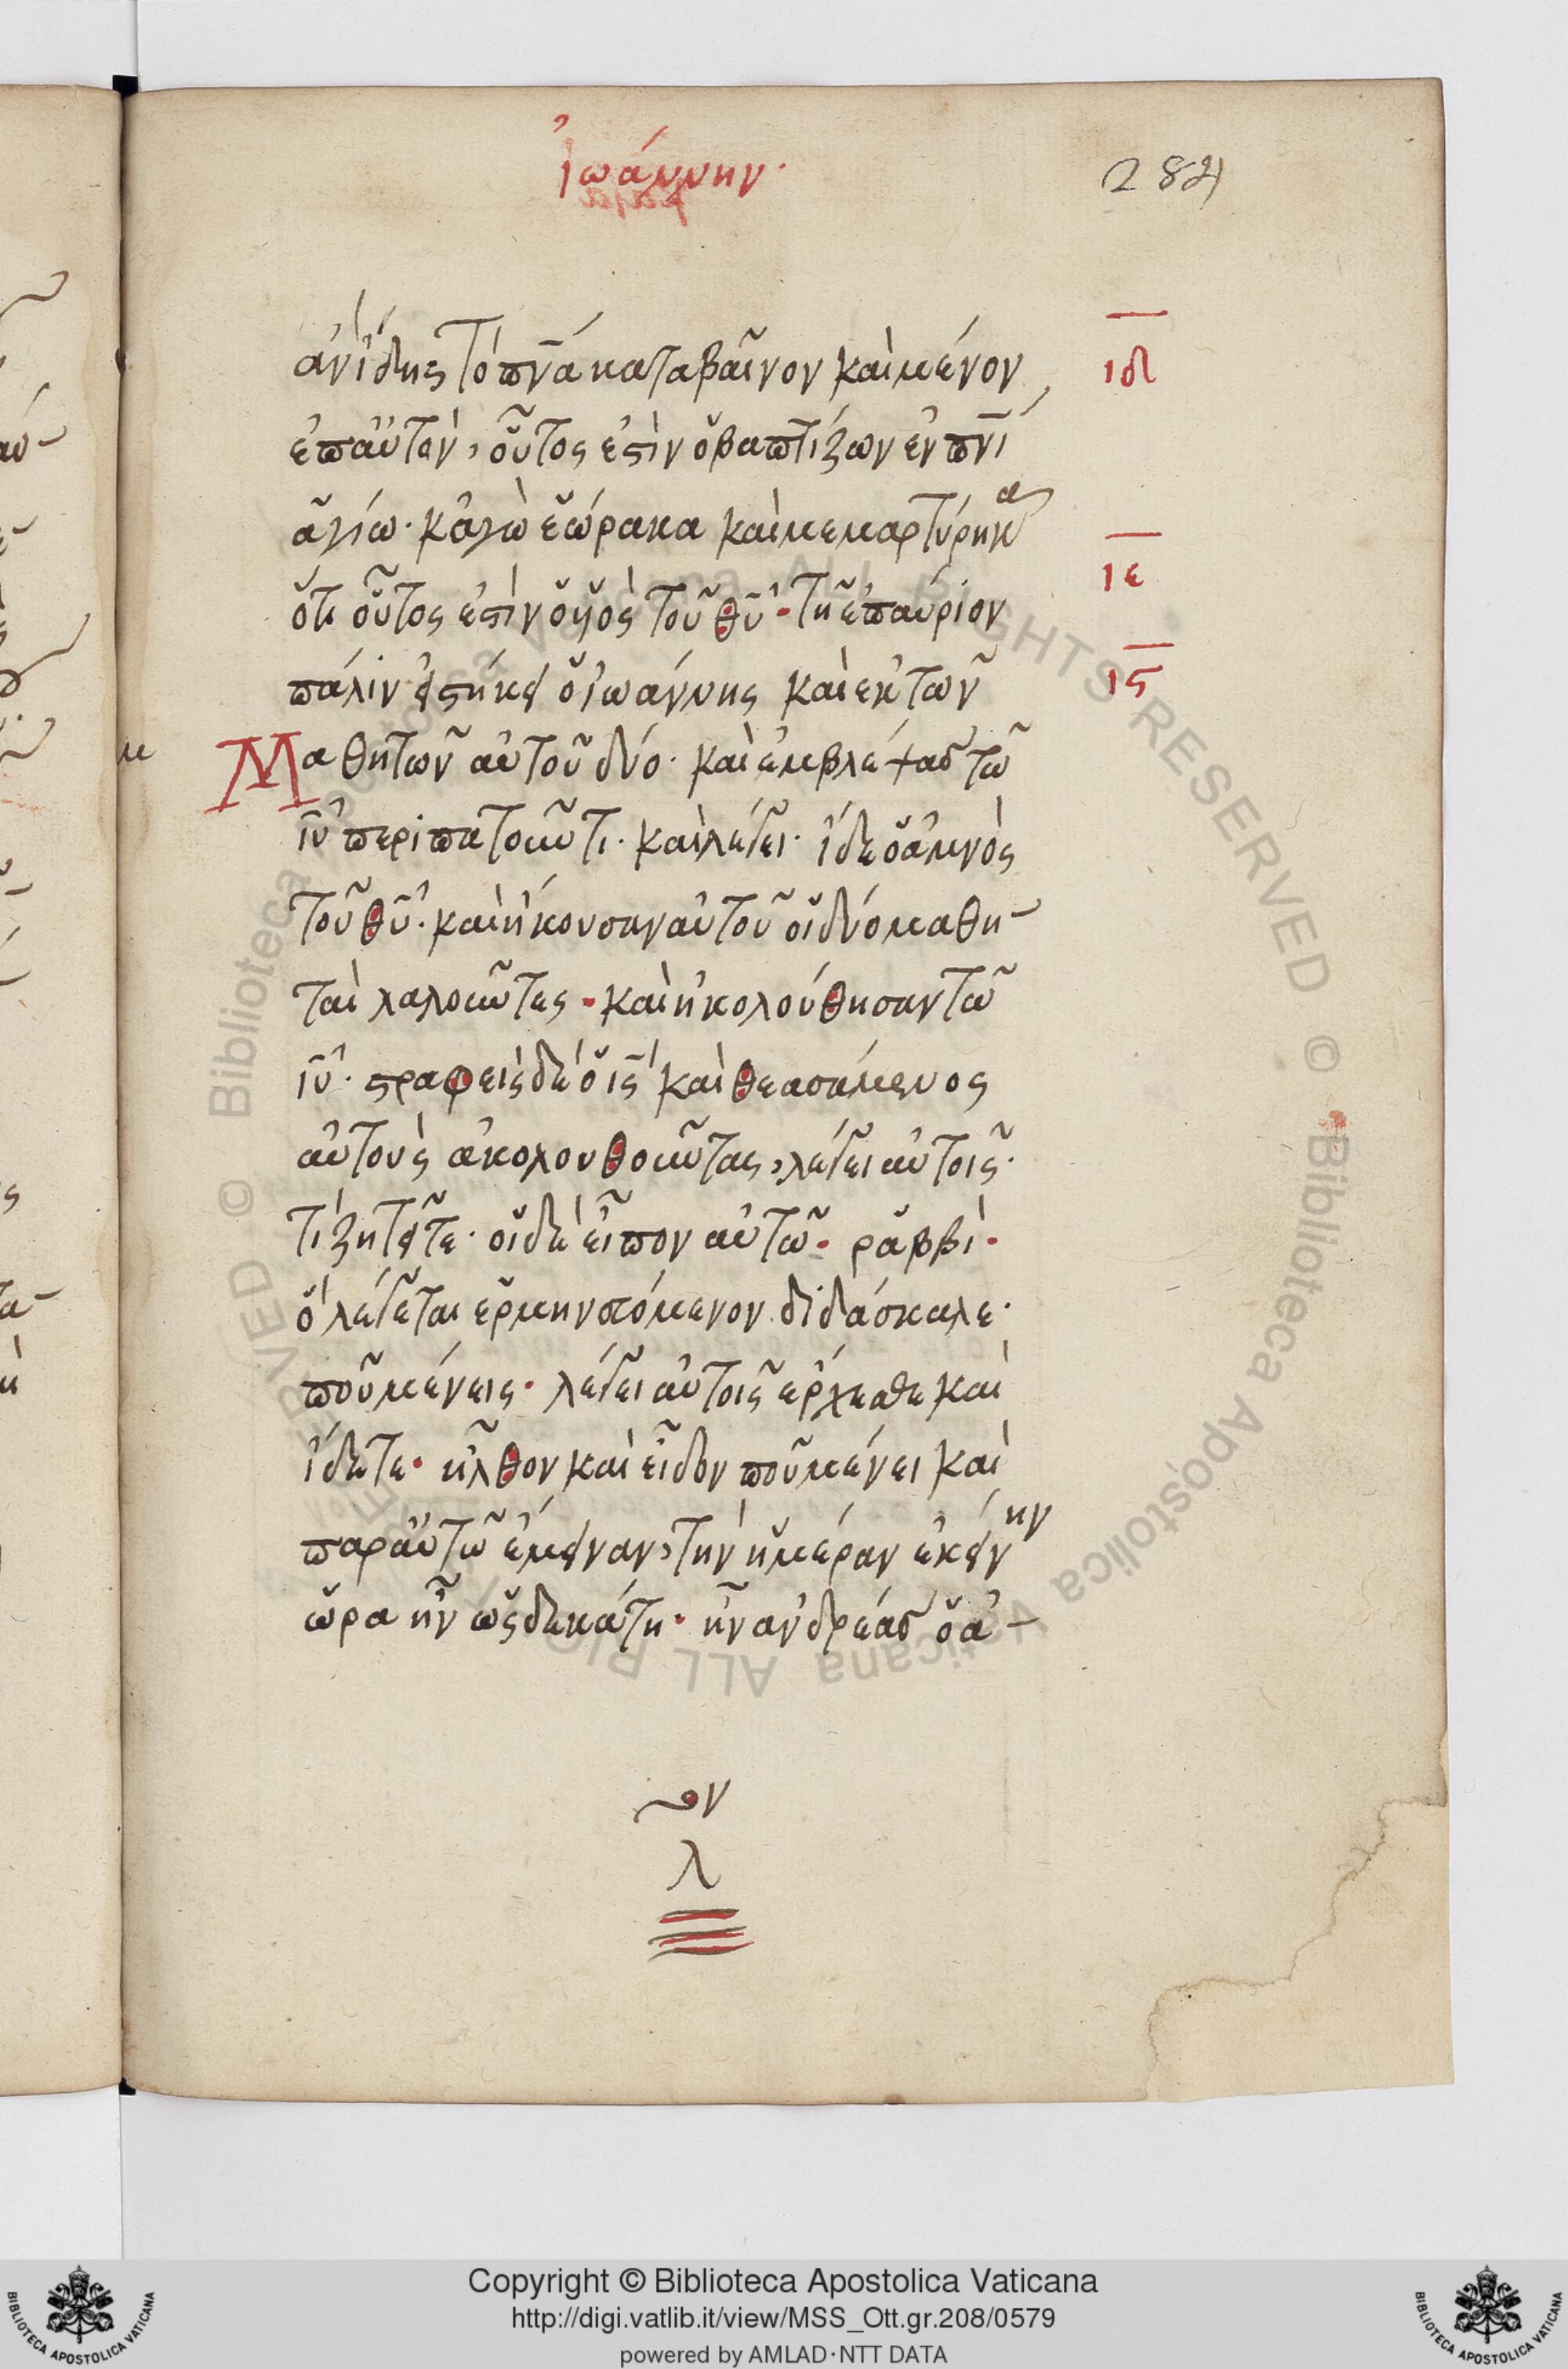 ἰωάννην·
284
ἂν ἴδῃς τὸ πν̅α καταβαῖνον καὶ μένον
ιδ
ἐπ αὐτὸν, οὗτός ἐστιν ὁ βαπτίζων ἐν πν̅ι
ἁγίω· κἀγὼ ἑώρακα καὶ μεμαρτύρηκα
ιε
ὅτι οὗτός ἐστιν ὁ υἱὸς τοῦ θ̅υ· τῆ ἐπαύριον
πάλιν εἱστήκει ὁ ἰωάννης καὶ ἐκ τῶν
ις
Μαθητῶν αὐτοῦ δύο· καὶ ἐμβλέψας τῶ
ι̅υ περιπατοῦντι· καὶ λέγει· ἴδε ὁ ἀμνὸς
τοῦ θ̅υ· καὶ ἤκουσαν αὐτοῦ οἱ δύο μαθη-
ταὶ λαλοῦντες· καὶ ἠκολούθησαν τῶ
ι̅υ· στραφεὶς δὲ ὁ ι̅ς καὶ θεασάμενος
αὐτοὺς ἀκολουθοῦντας, λέγει αὐτοῖς·
τί ζητεῖτε· οἱ δὲ εἶπον αὐτῶ· ῥαββὶ·
ὃ λέγεται ἑρμηνευόμενον διδάσκαλε·
ποῦ μένεις· λέγει αὐτοῖς ἔρχεσθε καὶ
ἴδετε· ἦλθον καὶ εἶδον ποῦ μένει καὶ
παρ αὐτῶ ἔμειναν, τὴν ἡμέραν ἐκείνην
ὥρα ἦν ὡς δεκάτη· ἦν ἀνδρέας ὁ ἀ-
λ
Copyright © Biblioteca Apostolica Vaticana
http://digi.vatlib.it/view/MSS_Ott.gr.208/0579
powered by AMLAD·NTT DATA